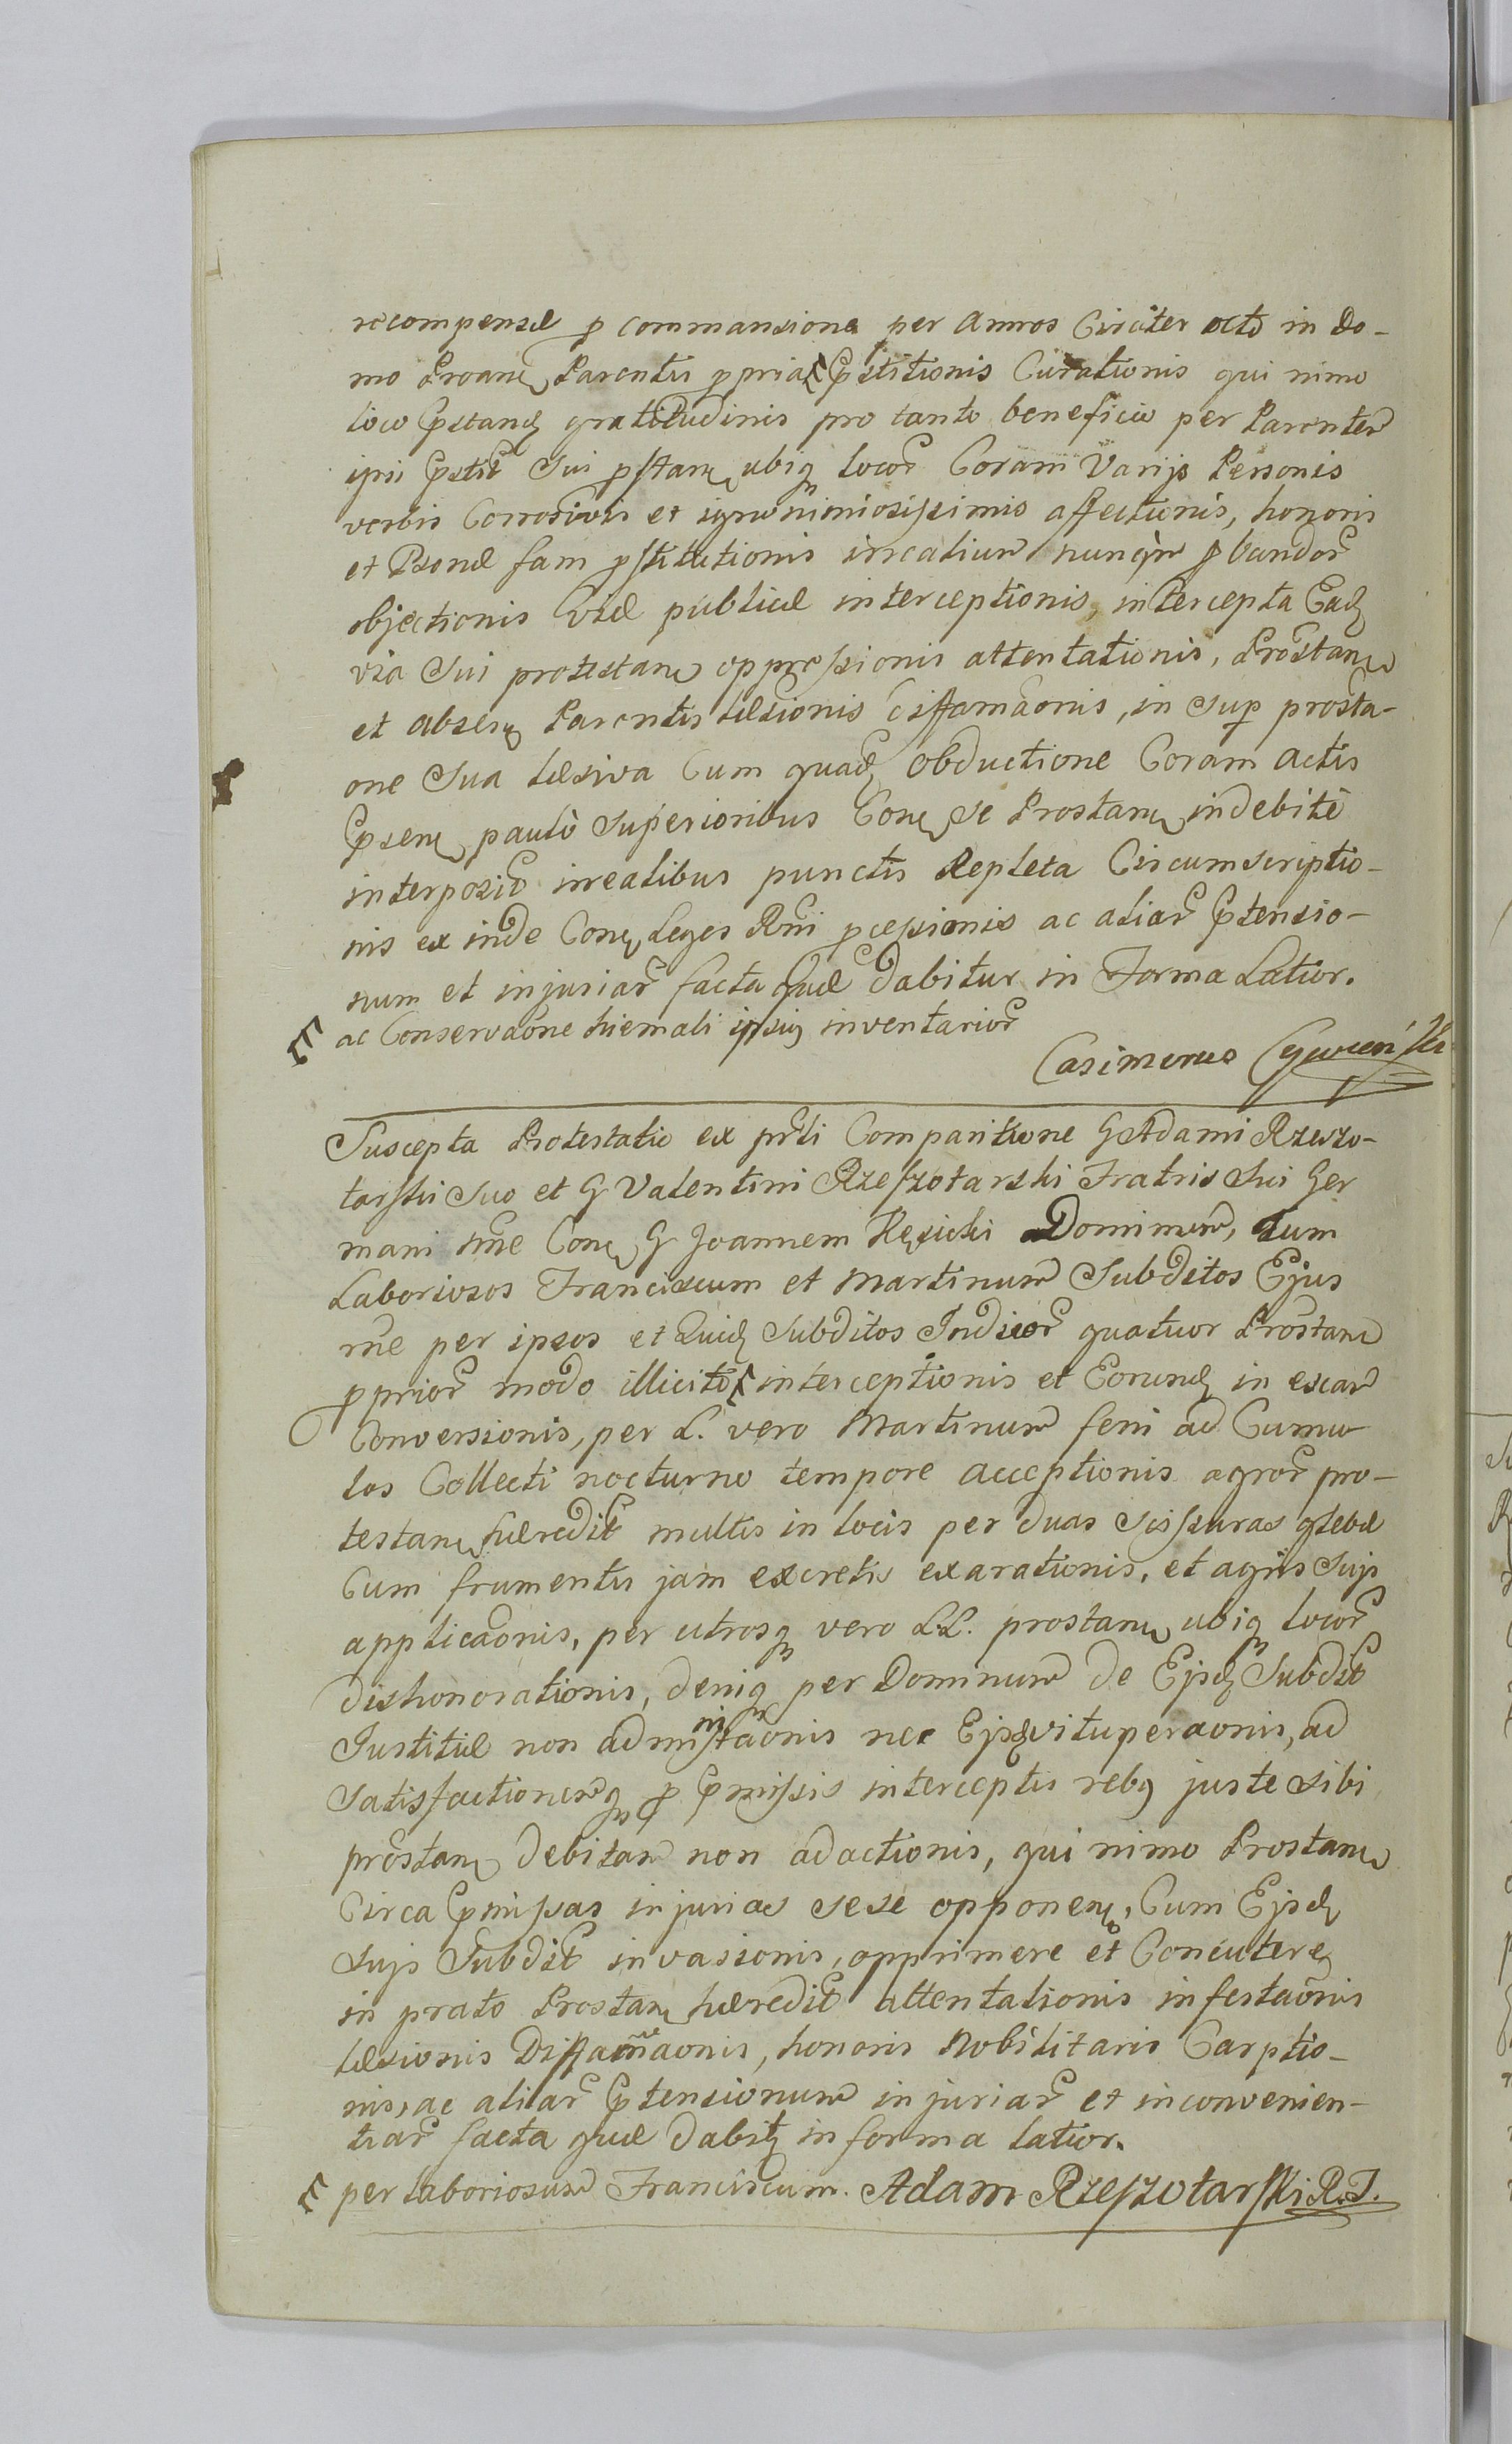 recompensæ p commansione per annos Circiter octo in do-
mo Proane Parentis ppria E Pstitionis Curationis qui nimo
loco Pstand gratitudinis pro tanto beneficio per Parentem
ipsi Pstit Sui pstane ubiq locor Coram Varijs Personis
verbis Corrosivis et ignominiosissimis affectionis, honoris
et Psonæ fam pstitutionis irrealium nunqm pbandor
objectionis Viæ publicæ interceptionis, intercepta Ead
via Sui protestane oppressionis attentationis, Prostane
et absen Parentis læsionis diffamaonis, in Sup prosta-
one Sua læsiva Cum quad obductione Coram actis
Psen paulo Superioribus Con Se Prostan indebite
interposit irrealibus punctis Repleta Circumscriptio-
nis ex inde Con Leges Rni pcessionis ac aliar Ptensio-
num et injuriar facta quæ dabitur in Forma Latior.
E ac Conservaone hiemali ipsius inventarior
Casimirus
Suscepta Protestatio ex prsti Comparitione G Adami Rzeszo-
tarski Suo et G Valentini Rzeszotarski Fratris Sui Ger
mani nne Con G Joannem Kęsicki Dominum, tum
Laboriosos Franciscum et Martinum Subditos Ejus
rne per ipsos et Quid Subditos Indicor quatuor Prostane
pprior modo illicito E interceptionis et Eorund in escam
Conversionis, per L. vero Martinum feni ad Cumu
los Collecti nocturno tempore acceptionis agror pro-
testan hæredit multis in locis per duas Scissuras glebæ
Cum frumentis jam excretis exarationis, et agris Sujs
applicaonis, per utrosq vero LL. prostane ubiq locor
dishonorationis, deniq per Dominum de Ejsd Subdit
Justitiæ non administraonis nec Ejsd vituperaonis, ad
Satisfactionemq p Pmissis interceptis rebq juste sibi
prostan debitam non adactionis, qui nimo Prostane
Circa Pmissas injurias sese opponen, Cum Ejsd
Sujs Subdit invasionis, opprimere et Concutere
in prato Prostan hæredit attentationis infestaonis
læsionis Diffamaonis, honoris Nobilitaris Carptio-
nis, ac aliar Ptensionum injuriar et inconvenien-
tiar facta quæ dabit in forma latior.
E per laboriosum Franciscum. Adam Rzeszotarski R.T.